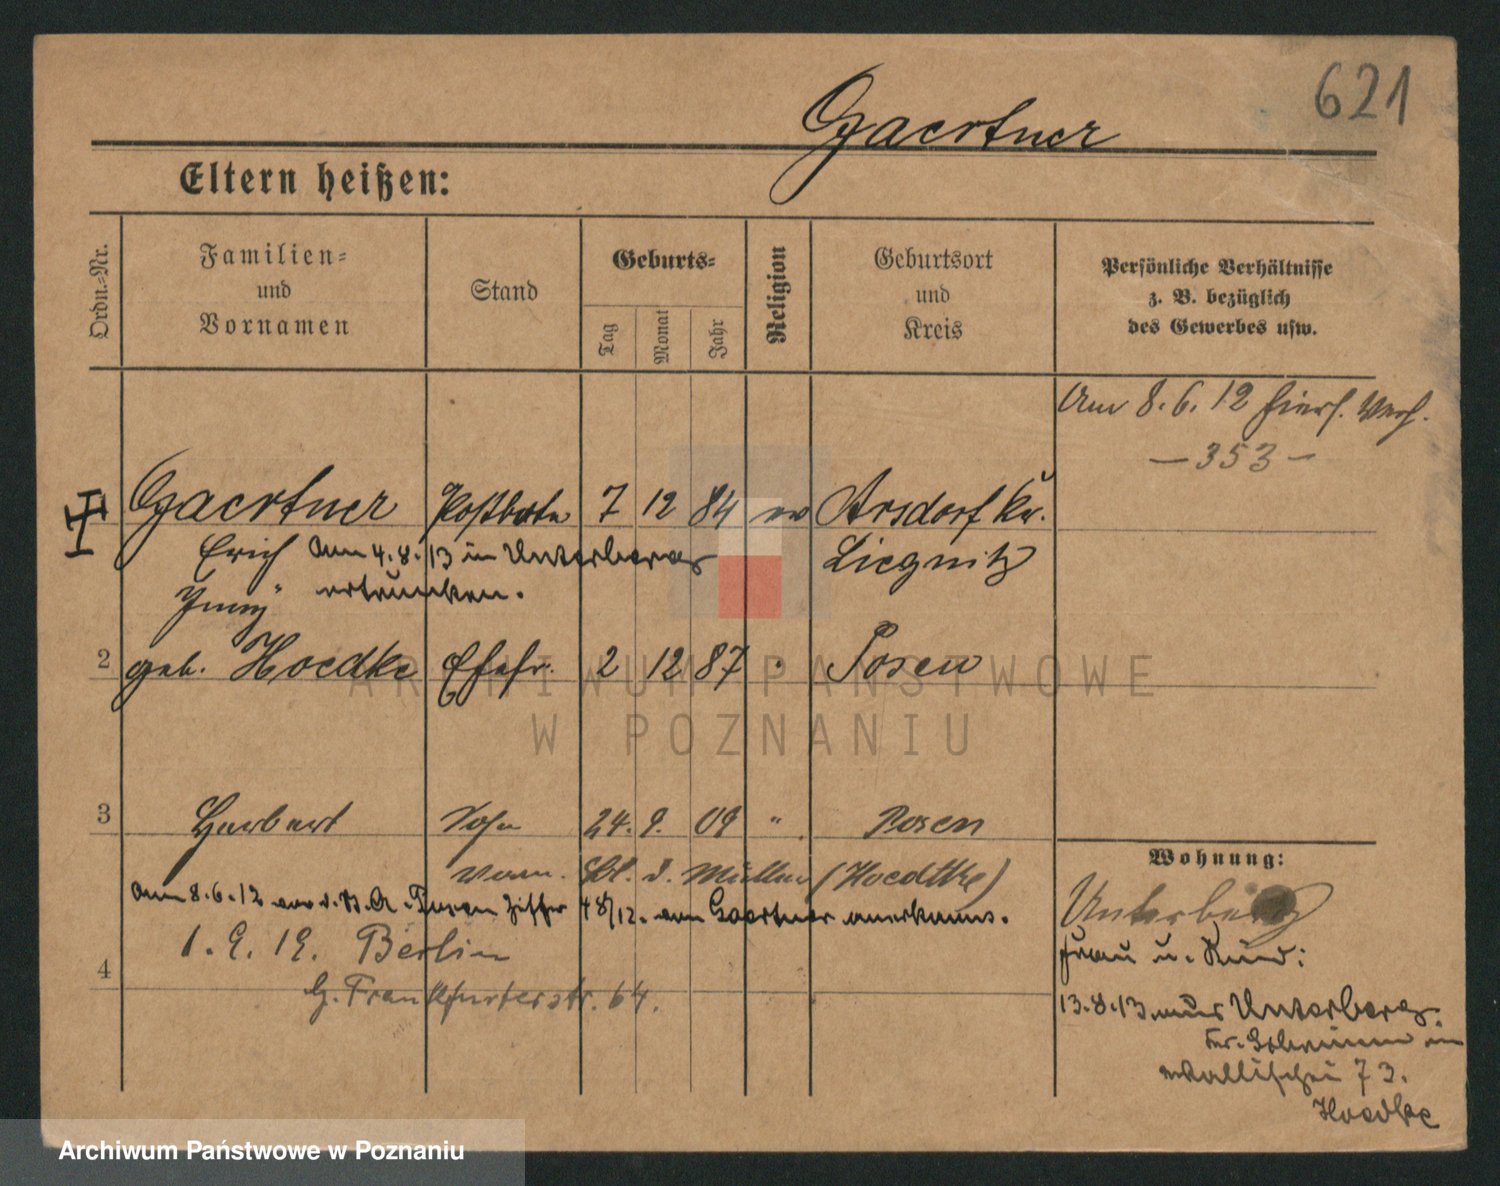 621
Gaertner
Eltern heißen:
Ordn.-Nr.
Familien-
und
Vornamen
Stand
Geburts-
Tag
Monat
Jahr
Religion
Geburtsort
und
Kreis
Persönliche Verhältnisse
z. B. bezüglich
des Gewerbes usw.
Am 8.6.12 hiers. Verh.
— 353 —
Gaertner Postbote 7 12 84 ev Arsdorf Kr.
Erich Am 4.8.13 in Unterberg Liegnitz
ertrunken.
2 geb. Hoedke Ehefr. 2 12 87 " Posen
3 Herbert Sohn 24. 9. 09 " Posen
Müller (Hoedtke)
Am 8.6.12 Posen 48/12. Gaertner anerkannt.
1.9.19. Berlin
4
G. Frankfurterstr. 64.
Wohnung:
Unterberg
Frau u. Kind:
13.8.13 aus Unterberg
Kr. Schrimm in
Wallischei 73.
Hoedke
ARCHIWUM PAŃSTWOWE
W POZNANIU
Archiwum Państwowe w Poznaniu